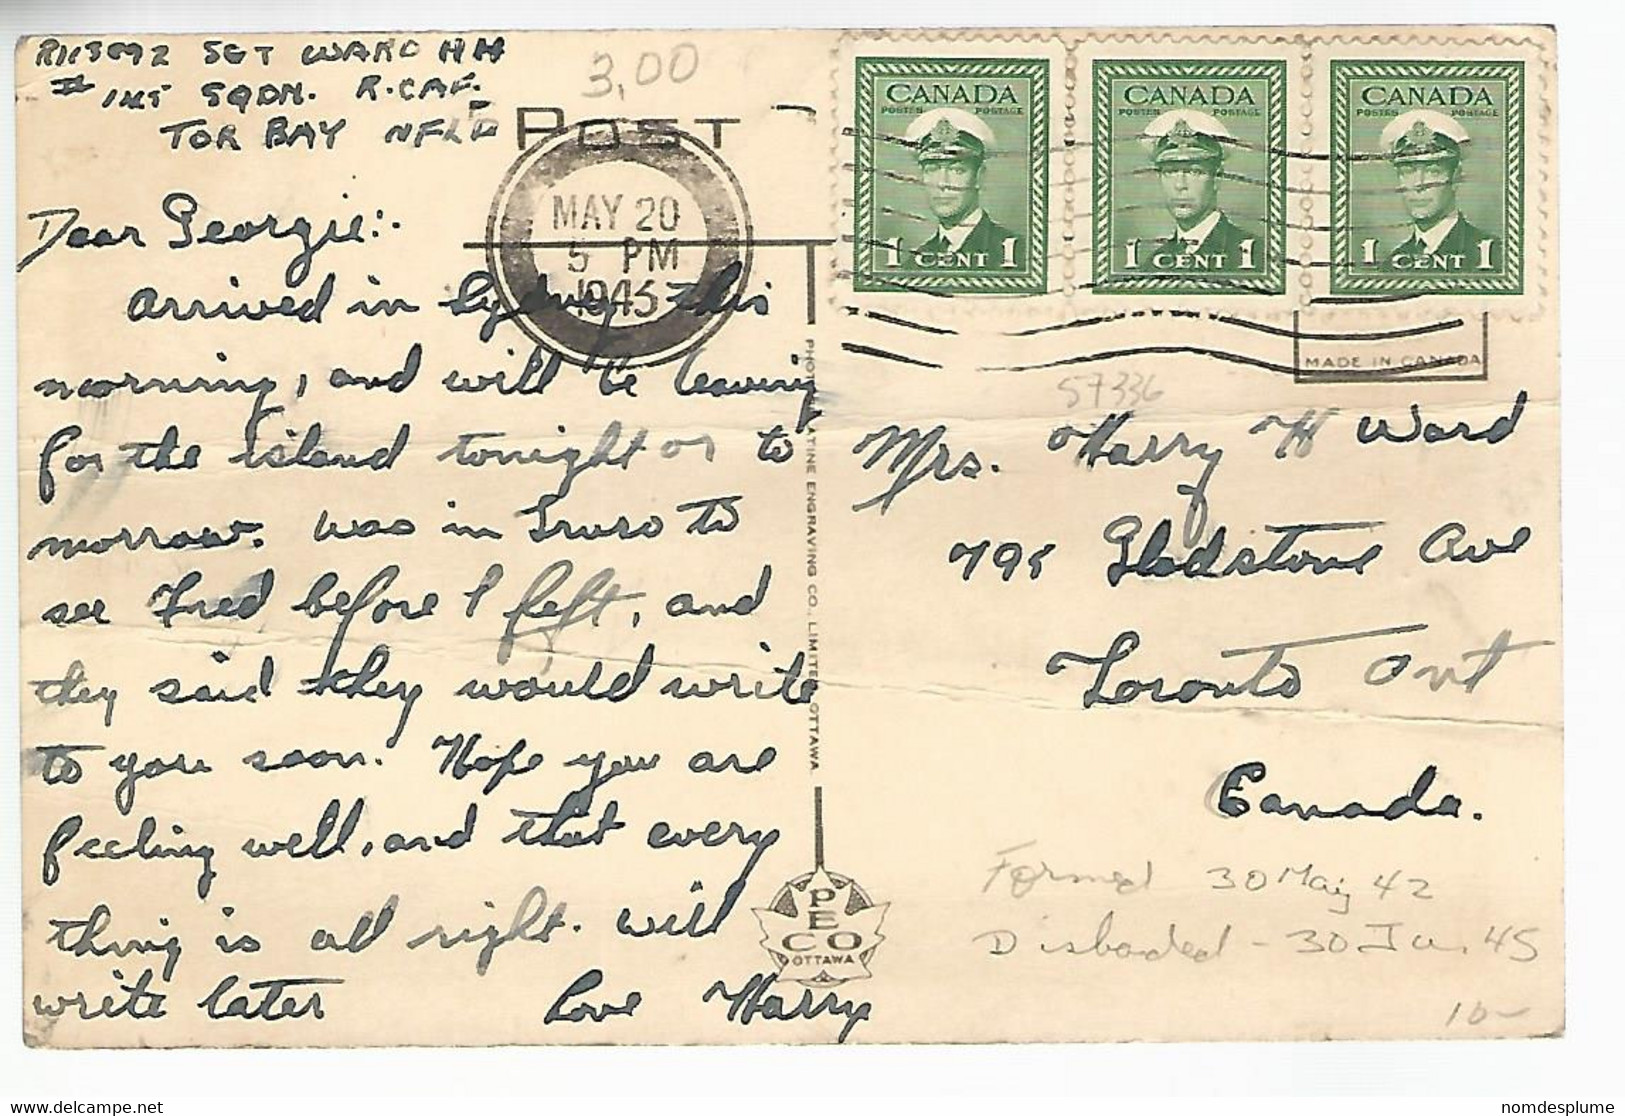 SGT WARD H H
SQDN. R.C.A.F.
TOR BAY NFLD
3,00
POST
MAY 20
5 PM
1943
CANADA
POSTES POSTAGE
1 CENT 1
CANADA
POSTES POSTAGE
1 CENT 1
CANADA
POSTES POSTAGE
1 CENT 1
MADE IN CANADA
Dear Georgie:-
arrived in Sydney this
morning, and will be leaving
for the island tonight or to
morrow. was in Truro to
see Fred before I left, and
they said they would write
to you soon. Hope you are
feeling well, and that every
thing is all right. will
write later Love Harry
ENGRAVING CO., LIMITED OTTAWA
PECO
OTTAWA
57336
Mrs. Harry H Ward
Gladstone Ave
Toronto Ont
Canada.
Formed 30 May 42
Disbaded - 30 Ju. 45
10-
nomdesplume
www.delcampe.net